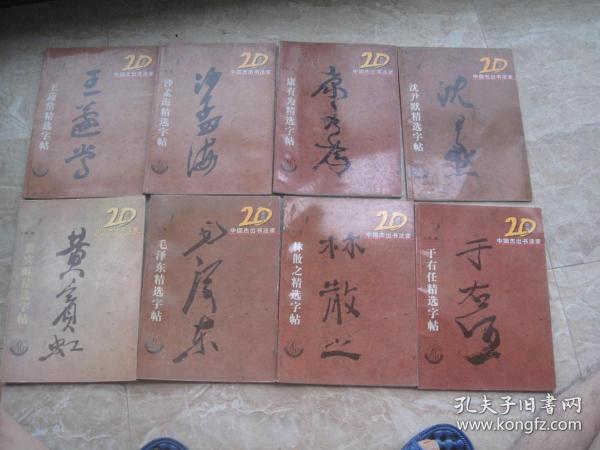 20
中国杰出书法家
王蘧常精选字帖
王蘧常
20
中国杰出书法家
沙孟海精选字帖
沙孟海
20
中国杰出书法家
康有为精选字帖
康有为
20
中国杰出书法家
沈尹默精选字帖
沈尹默
20
黄宾虹
20
中国杰出书法家
毛泽东精选字帖
毛泽东
20
中国杰出书法家
林散之精选字帖
林散之
20
中国杰出书法家
于右任精选字帖
于右任
孔夫子旧书网
www.kongfz.com